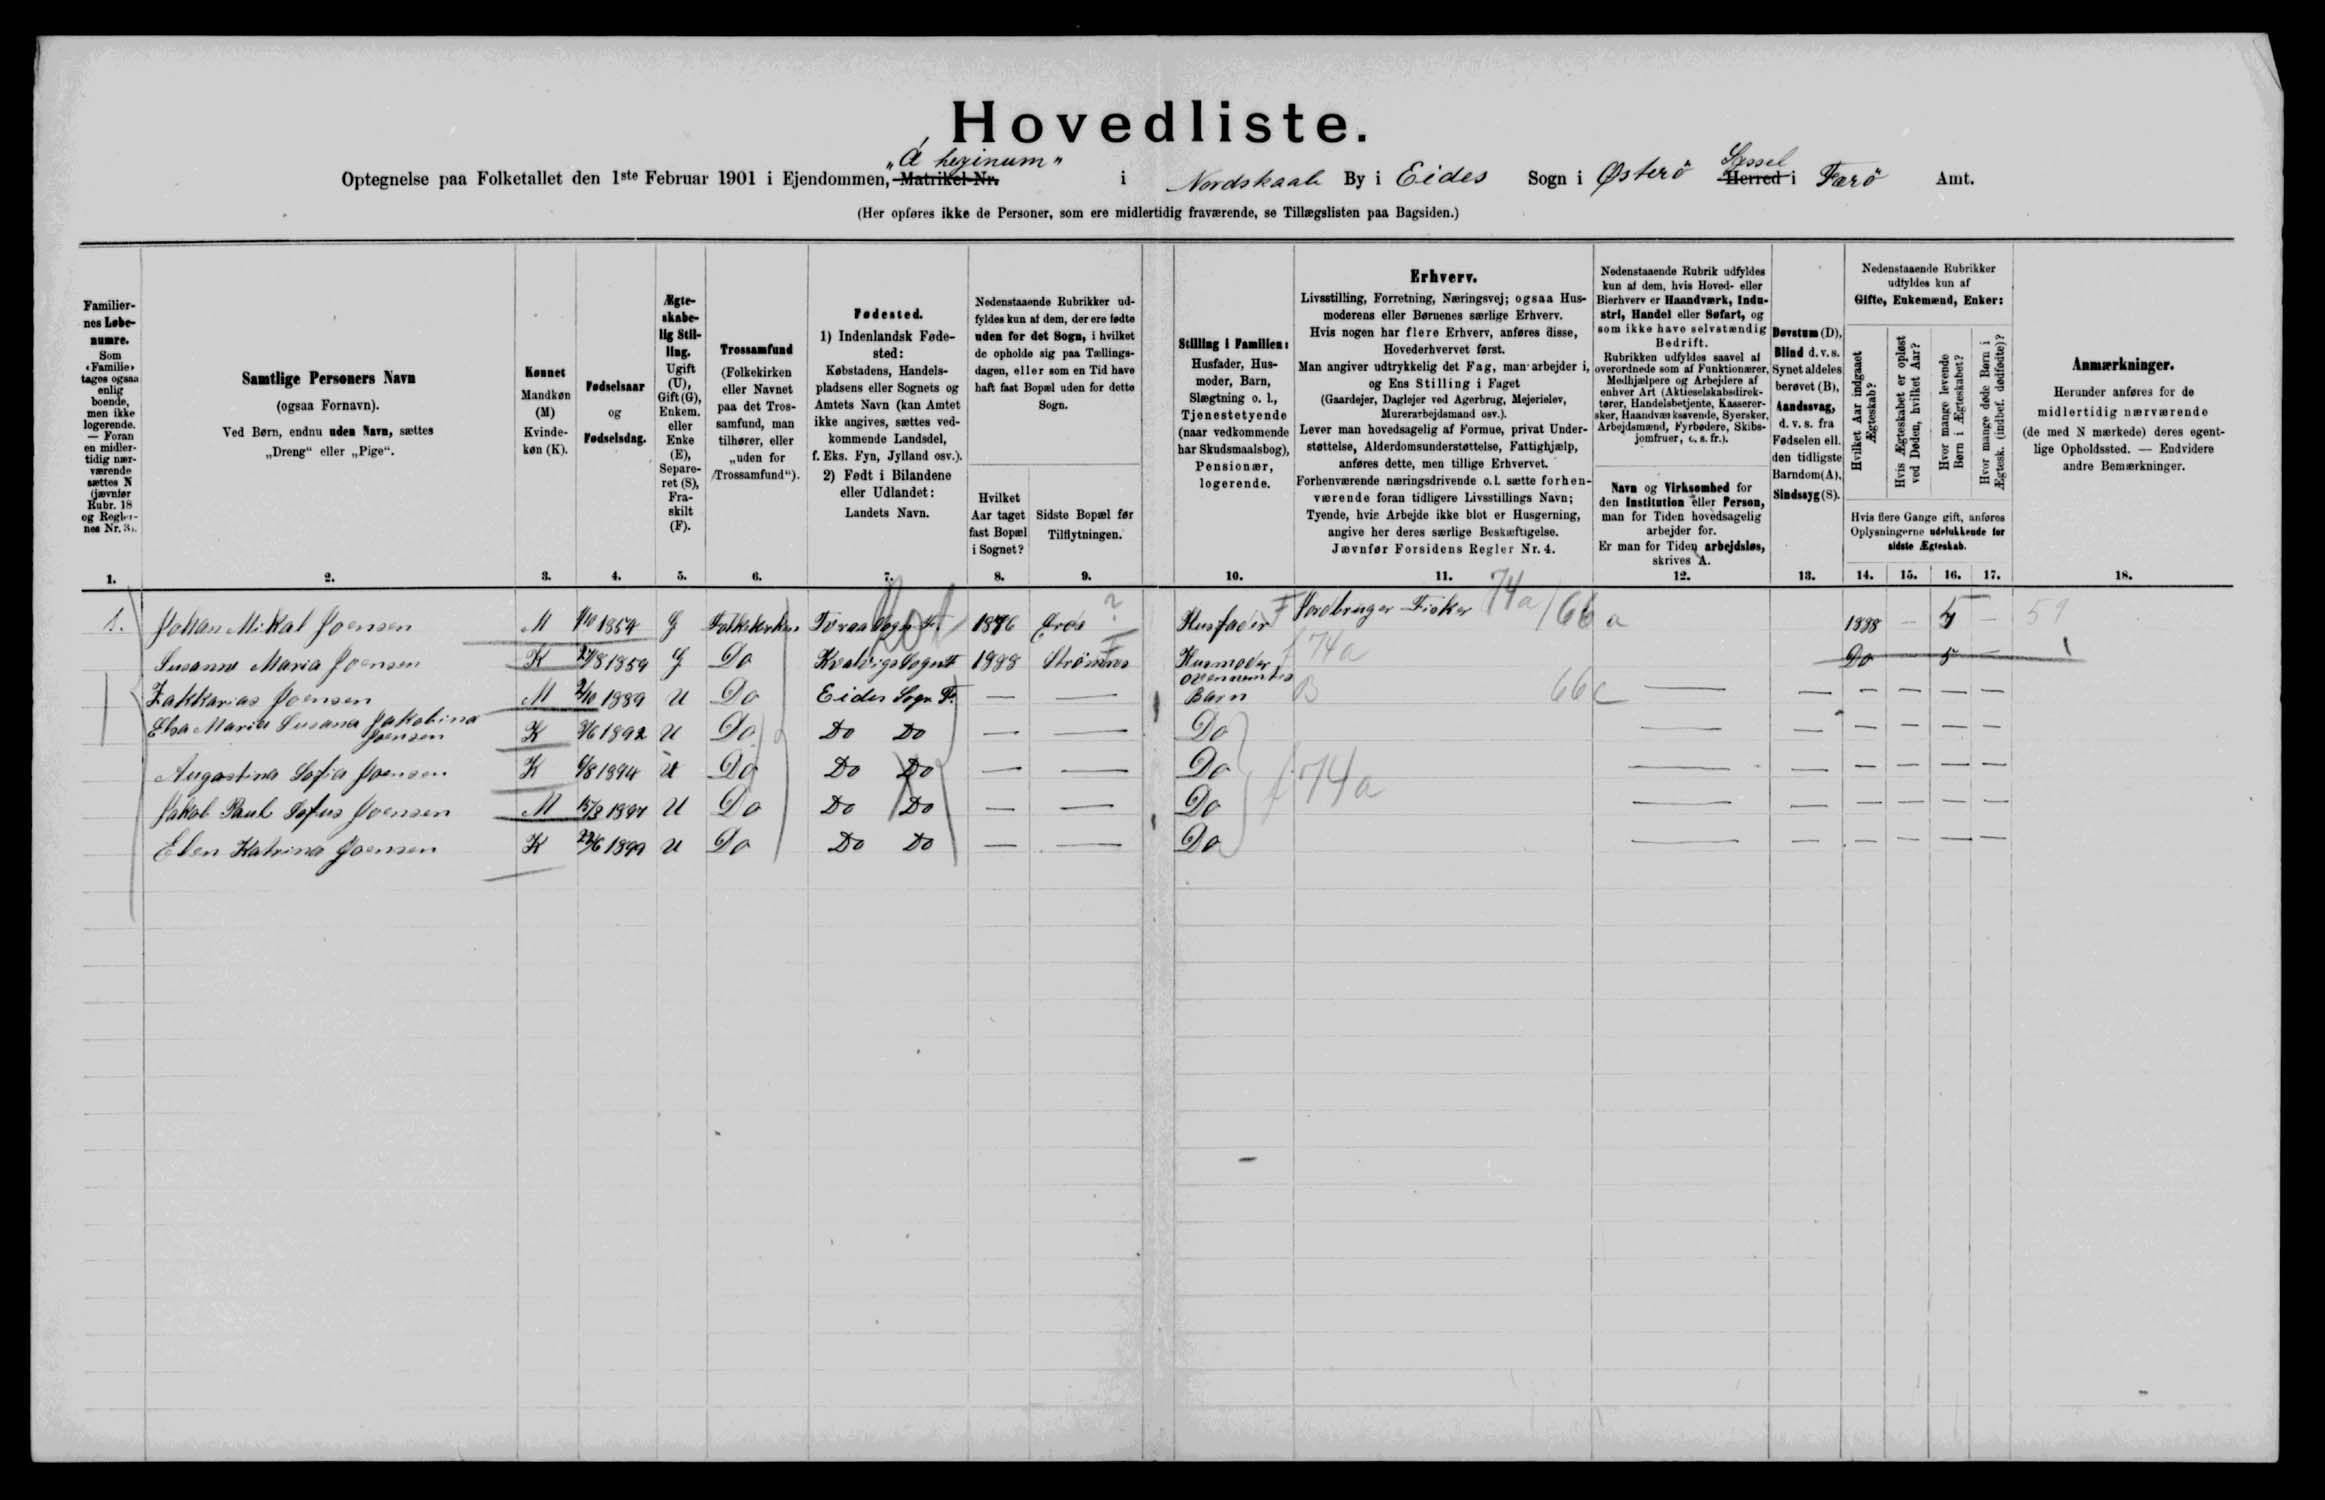 Hovedliste.
"Á heginum"
Optegnelse paa Folketallet den 1ste Februar 1901 i Ejendommen, Matrikel-Nr. i Nordskaale By i Eides Sogn i Østerö Herred i Færö Amt.
Syssel
(Her opføres ikke de Personer, som ere midlertidig fraværende, se Tillægslisten paa Bagsiden.)
Familier-
nes Løbe-
numre.
Som
«Familie»
tages ogsaa
enlig
boende,
men ikke
logerende.
— Foran
en midler-
tidig nær-
værende
sættes N
(jævnfør
Rubr. 18
og Regler-
nes Nr. 3).
1.
Samtlige Personers Navn
(ogsaa Fornavn).
Ved Børn, endnu uden Navn, sættes
„Dreng“ eller „Pige“.
2.
Kønnet
Mandkøn
(M)
Kvinde-
køn (K).
3.
Fødselsaar
og
Fødselsdag.
4.
Ægte-
skabe-
lig Stil-
ling.
Ugift
(U),
Gift (G),
Enkem.
eller
Enke
(E),
Separe-
ret (S),
Fra-
skilt
(F).
5.
Trossamfund
(Folkekirken
eller Navnet
paa det Tros-
samfund, man
tilhører, eller
„uden for
Trossamfund“).
6.
Fødested.
1) Indenlandsk Føde-
sted:
Købstadens, Handels-
pladsens eller Sognets og
Amtets Navn (kan Amtet
ikke angives, sættes ved-
kommende Landsdel,
f. Eks. Fyn, Jylland osv.).
2) Født i Bilandene
eller Udlandet:
Landets Navn.
7.
Nedenstaaende Rubrikker ud-
fyldes kun af dem, der ere fødte
uden for det Sogn, i hvilket
de opholde sig paa Tællings-
dagen, eller som en Tid have
haft fast Bopæl uden for dette
Sogn.
Hvilket
Aar taget
fast Bopæl
i Sognet?
8.
Sidste Bopæl før
Tilflytningen.
9.
Stilling i Familien:
Husfader, Hus-
moder, Barn,
Slægtning o. l.,
Tjenestetyende
(naar vedkommende
har Skudsmaalsbog),
Pensionær,
logerende.
10.
Erhverv.
Livsstilling, Forretning, Næringsvej; ogsaa Hus-
moderens eller Børnenes særlige Erhverv.
Hvis nogen har flere Erhverv, anføres disse,
Hovederhvervet først.
Man angiver udtrykkelig det Fag, man arbejder i,
og Ens Stilling i Faget
(Gaardejer, Daglejer ved Agerbrug, Mejerielev,
Murerarbejdsmand osv.).
Lever man hovedsagelig af Formue, privat Under-
støttelse, Alderdomsunderstøttelse, Fattighjælp,
anføres dette, men tillige Erhvervet.
Forhenværende næringsdrivende o. l. sætte forhen-
værende foran tidligere Livsstillings Navn;
Tyende, hvis Arbejde ikke blot er Husgerning,
angive her deres særlige Beskæftigelse.
Jævnfør Forsidens Regler Nr. 4.
11.
Nedenstaaende Rubrik udfyldes
kun af dem, hvis Hoved- eller
Bierhverv er Haandværk, Indu-
stri, Handel eller Søfart, og
som ikke have selvstændig
Bedrift.
Rubrikken udfyldes saavel af
overordnede som af Funktionærer,
Medhjælpere og Arbejdere af
enhver Art (Aktieselskabsdirek-
tører, Handelsbetjente, Kasserer-
sker, Haandværkssvende, Syersker,
Arbejdsmænd, Fyrbødere, Skibs-
jomfruer, o. s. fr.).
Navn og Virksomhed for
den Institution eller Person,
man for Tiden hovedsagelig
arbejder for.
Er man for Tiden arbejdsløs,
skrives A.
12.
Døvstum (D),
Blind d. v. s.
Synet aldeles
berøvet (B),
Aandssvag,
d. v. s. fra
Fødselen ell.
den tidligste
Barndom (A),
Sindssyg (S).
13.
Nedenstaaende Rubrikker
udfyldes kun af
Gifte, Enkemænd, Enker:
Hvilket Aar indgaaet
Ægteskab?
Hvis Ægteskabet er opløst
ved Døden, hvilket Aar?
Hvor mange levende
Børn i Ægteskabet?
Hvor mange døde Børn i
Ægtesk. (indbef. dødfødte)?
Hvis flere Gange gift, anføres
Oplysningerne udelukkende for
sidste Ægteskab.
14. 15. 16. 17.
Anmærkninger.
Herunder anføres for de
midlertidig nærværende
(de med N mærkede) deres egent-
lige Opholdssted. — Endvidere
andre Bemærkninger.
18.
1. Johan Mikal Joensen M 1854 G Folkekirken 1876 Husfader F Jordbruger Fisker 74a / 66 a 1888 — 5 —
Susanne Maria Joensen K 1859 G Do Kvalvigs Sogn F 1888 Strømnæs Husmoder f 74a Do 5 —
Zakkarias Joensen M 1889 U Do Eides Sogn F. — — Barn B 66c — — — — — —
Elsa Maria Susana Jakobina
Joensen K 1892 U Do Do Do — — Do — — — — — —
Augostina Sofia Joensen K 1894 U Do Do Do — — Do f 74a — — — — — —
Jakob Paul Sofus Joensen M 1897 U Do Do Do — — Do — — — — — —
Elen Katrina Joensen K 1899 U Do Do Do — — Do — — — — — —